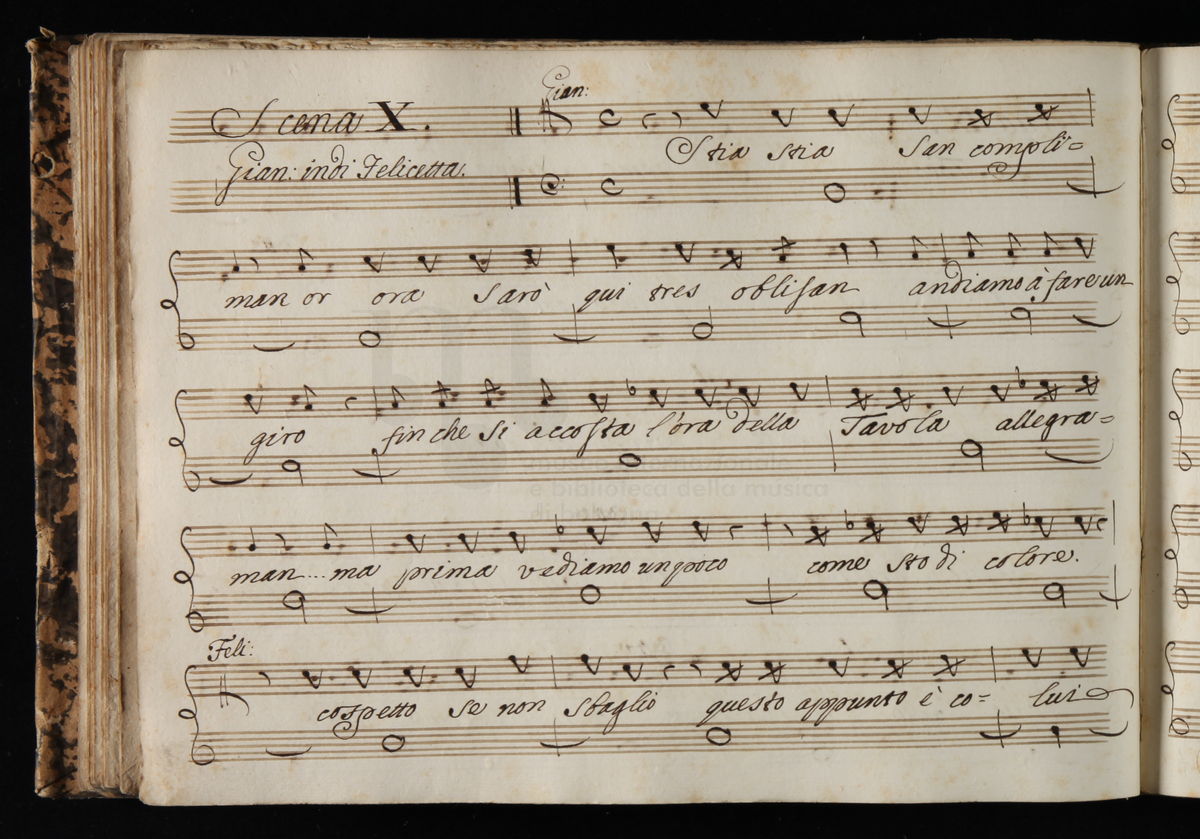 Gian:
Scena X.
Stia stia san compli=
Gian: indi Felicetta.
man or ora sarò qui tres oblisan andiamo à fare un
giro fin che si accosta l'ora della Tavola allegra=
e biblioteca della musica
man... ma prima vediamo un poco come sto di colore.
Feli:
cospetto se non sbaglio questo appunto è co= lui